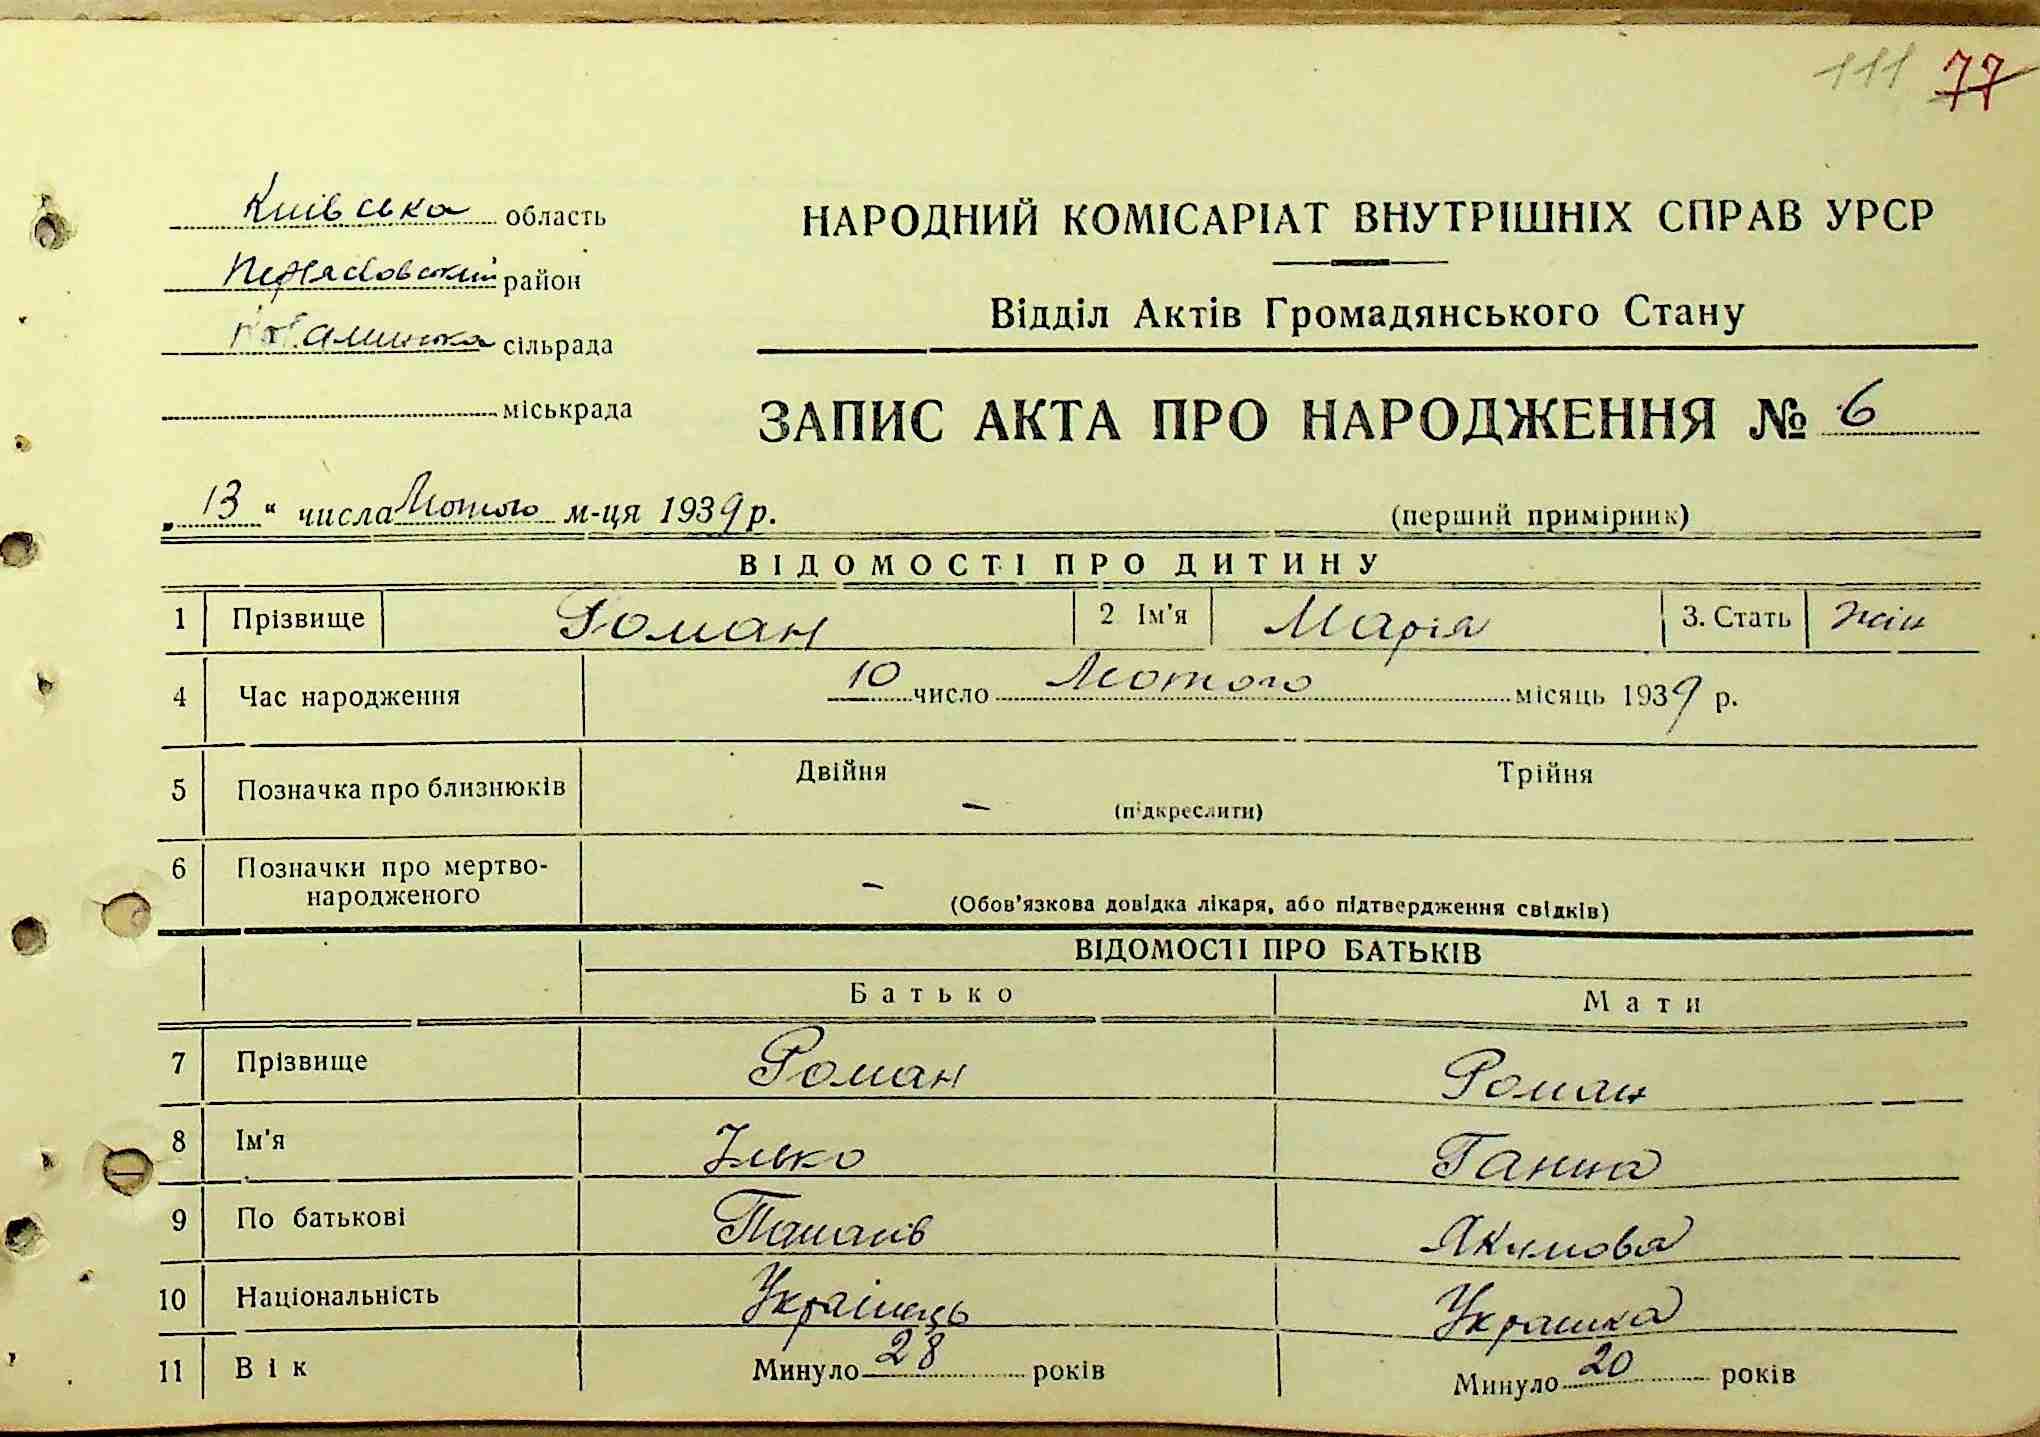 111 77
Київська область
район
сільрада
міськрада
НАРОДНИЙ КОМІСАРІАТ ВНУТРІШНІХ СПРАВ УРСР
Відділ Актів Громадянського Стану
ЗАПИС АКТА ПРО НАРОДЖЕННЯ № 6
„13“ числа Лютого м-ця 1939 р.
(перший примірник)
ВІДОМОСТІ ПРО ДИТИНУ
1 Прізвище Роман 2 Ім'я Марія 3. Стать жін
4 Час народження 10 число Лютого місяць 1939 р.
5 Позначка про близнюків Двійня Трійня
– (підкреслити)
6 Позначки про мертво-
народженого –
(Обов'язкова довідка лікаря, або підтвердження свідків)
ВІДОМОСТІ ПРО БАТЬКІВ
Батько Мати
7 Прізвище Роман Роман
8 Ім'я Ілько Ганна
9 По батькові Якимова
10 Національність Українець Українка
11 Вік Минуло 28 років Минуло 20 років